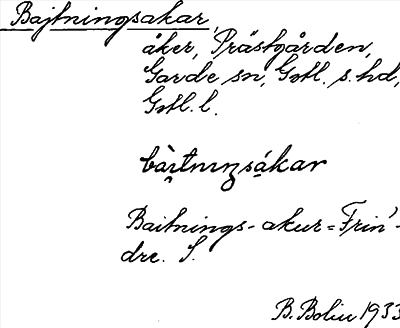 Bajtningsakar,
åker, Prästgården,
Garde sn, Gotl. s. hd,
Gotl. l.
Baitnings-akur = Frin'-
dre. S.
B. Bolin 1933